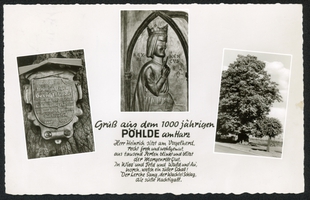 Gruß aus dem 1000 jährigen
PÖHLDE am Harz
Herr Heinrich sitzt am Vogelherd,
recht froh und wohlgemut
aus tausend Perlen blinkt und blitzt
der Morgenröte Glut.
In Wies und Feld und Wald und Au,
horch, welch ein süßer Schall!
Der Lerche Sang, der Wachtel Schlag,
die süße Nachtigall.